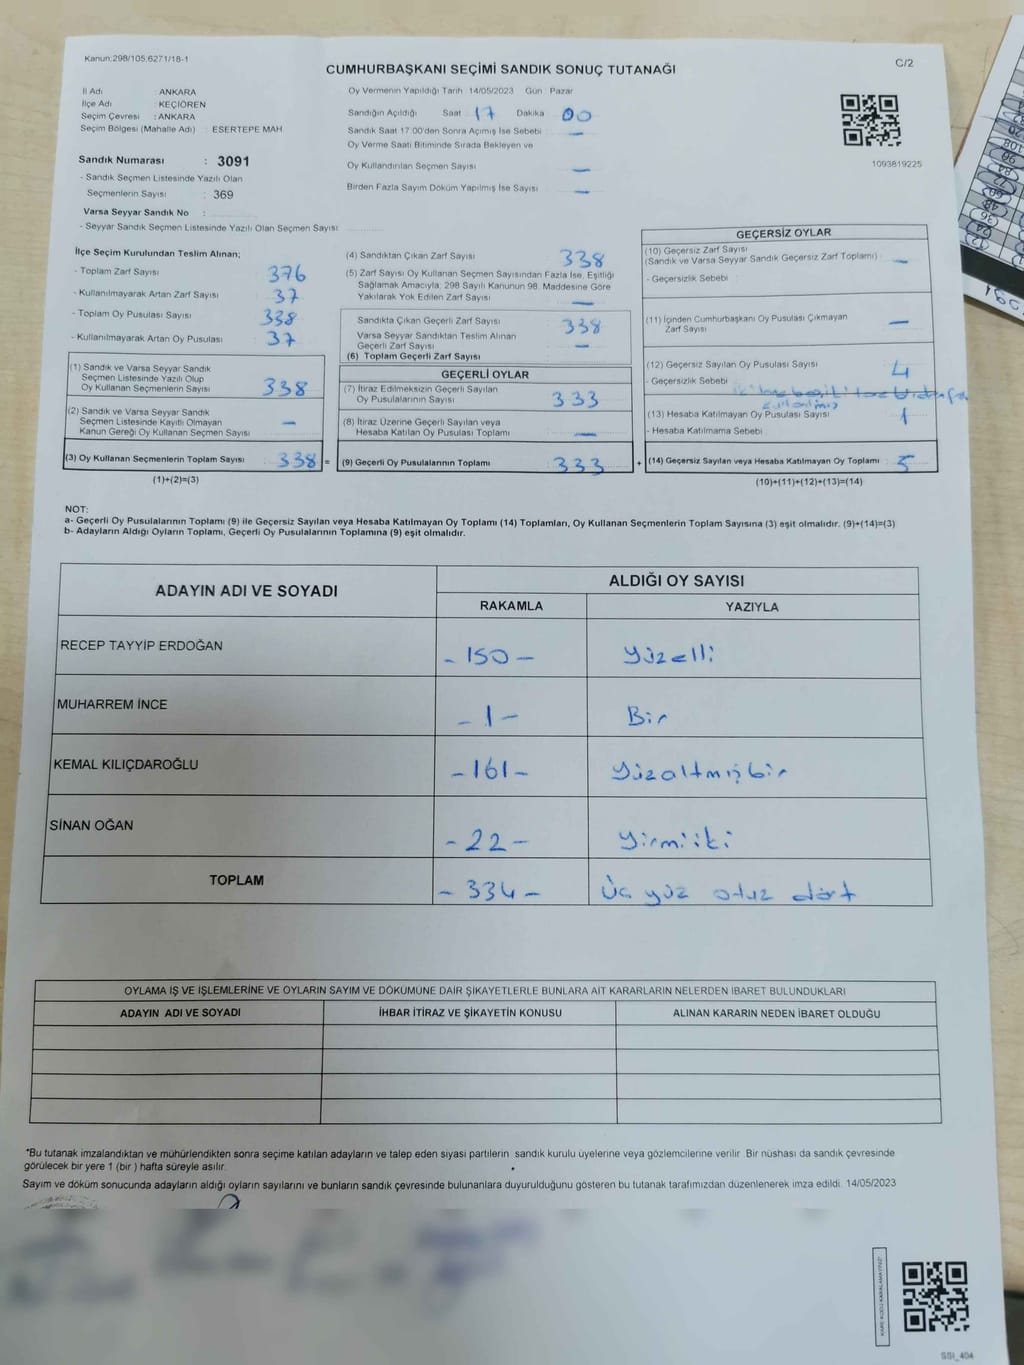 Kanun:298/105.6271/18-1
C/2
CUMHURBAŞKANI SEÇİMİ SANDIK SONUÇ TUTANAĞI
İl Adı : ANKARA
İlçe Adı : KEÇİÖREN
Seçim Çevresi : ANKARA
Seçim Bölgesi (Mahalle Adı) : ESERTEPE MAH
Sandık Numarası : 3091
- Sandık Seçmen Listesinde Yazılı Olan
Seçmenlerin Sayısı : 369
Varsa Seyyar Sandık No :
- Seyyar Sandık Seçmen Listesinde Yazılı Olan Seçmen Sayısı
Oy Vermenin Yapıldığı Tarih 14/05/2023 Gün : Pazar
Sandığın Açıldığı Saat 17 Dakika 00
Sandık Saat 17.00'den Sonra Açılmış İse Sebebi —
Oy Verme Saati Bitiminde Sırada Bekleyen ve
Oy Kullandırılan Seçmen Sayısı —
Birden Fazla Sayım Döküm Yapılmış İse Sayısı —
1093819225
İlçe Seçim Kurulundan Teslim Alınan;
- Toplam Zarf Sayısı 376
- Kullanılmayarak Artan Zarf Sayısı 37
- Toplam Oy Pusulası Sayısı 338
- Kullanılmayarak Artan Oy Pusulası 37
(1) Sandık ve Varsa Seyyar Sandık
Seçmen Listesinde Yazılı Olup
Oy Kullanan Seçmenlerin Sayısı 338
(2) Sandık ve Varsa Seyyar Sandık
Seçmen Listesinde Kayıtlı Olmayan
Kanun Gereği Oy Kullanan Seçmen Sayısı —
(3) Oy Kullanan Seçmenlerin Toplam Sayısı 338 =
(1)+(2)=(3)
(4) Sandıktan Çıkan Zarf Sayısı 338
(5) Zarf Sayısı Oy Kullanan Seçmen Sayısından Fazla İse, Eşitliği
Sağlamak Amacıyla, 298 Sayılı Kanunun 98. Maddesine Göre
Yakılarak Yok Edilen Zarf Sayısı —
Sandıkta Çıkan Geçerli Zarf Sayısı 338
Varsa Seyyar Sandıktan Teslim Alınan
Geçerli Zarf Sayısı —
(6) Toplam Geçerli Zarf Sayısı
GEÇERLİ OYLAR
(7) İtiraz Edilmeksizin Geçerli Sayılan
Oy Pusulalarının Sayısı 333
(8) İtiraz Üzerine Geçerli Sayılan veya
Hesaba Katılan Oy Pusulası Toplamı —
(9) Geçerli Oy Pusulalarının Toplamı 333 +
GEÇERSİZ OYLAR
(10) Geçersiz Zarf Sayısı
(Sandık ve Varsa Seyyar Sandık Geçersiz Zarf Toplamı) —
- Geçersizlik Sebebi
(11) İçinden Cumhurbaşkanı Oy Pusulası Çıkmayan
Zarf Sayısı —
(12) Geçersiz Sayılan Oy Pusulası Sayısı 4
- Geçersizlik Sebebi
(13) Hesaba Katılmayan Oy Pusulası Sayısı 1
- Hesaba Katılmama Sebebi
(14) Geçersiz Sayılan veya Hesaba Katılmayan Oy Toplamı 5
(10)+(11)+(12)+(13)=(14)
NOT:
a- Geçerli Oy Pusulalarının Toplamı (9) ile Geçersiz Sayılan veya Hesaba Katılmayan Oy Toplamı (14) Toplamları, Oy Kullanan Seçmenlerin Toplam Sayısına (3) eşit olmalıdır. (9)+(14)=(3)
b- Adayların Aldığı Oyların Toplamı, Geçerli Oy Pusulalarının Toplamına (9) eşit olmalıdır.
ADAYIN ADI VE SOYADI
ALDIĞI OY SAYISI
RAKAMLA YAZIYLA
RECEP TAYYİP ERDOĞAN - 150 - Yüzelli
MUHARREM İNCE - 1 - Bir
KEMAL KILIÇDAROĞLU - 161 - Yüzaltmışbir
SİNAN OĞAN - 22 - Yirmiiki
TOPLAM - 334 - Üç yüz otuz dört
OYLAMA İŞ VE İŞLEMLERİNE VE OYLARIN SAYIM VE DÖKÜMÜNE DAİR ŞİKAYETLERLE BUNLARA AİT KARARLARIN NELERDEN İBARET BULUNDUKLARI
ADAYIN ADI VE SOYADI İHBAR İTİRAZ VE ŞİKAYETİN KONUSU ALINAN KARARIN NEDEN İBARET OLDUĞU
*Bu tutanak imzalandıktan ve mühürlendikten sonra seçime katılan adayların ve talep eden siyasi partilerin sandık kurulu üyelerine veya gözlemcilerine verilir. Bir nüshası da sandık çevresinde
görülecek bir yere 1 (bir ) hafta süreyle asılır.
Sayım ve döküm sonucunda adayların aldığı oyların sayılarını ve bunların sandık çevresinde bulunanlara duyurulduğunu gösteren bu tutanak tarafımızdan düzenlenerek imza edildi. 14/05/2023
KARE KODU KARALAMAYINIZ!
SSI_404